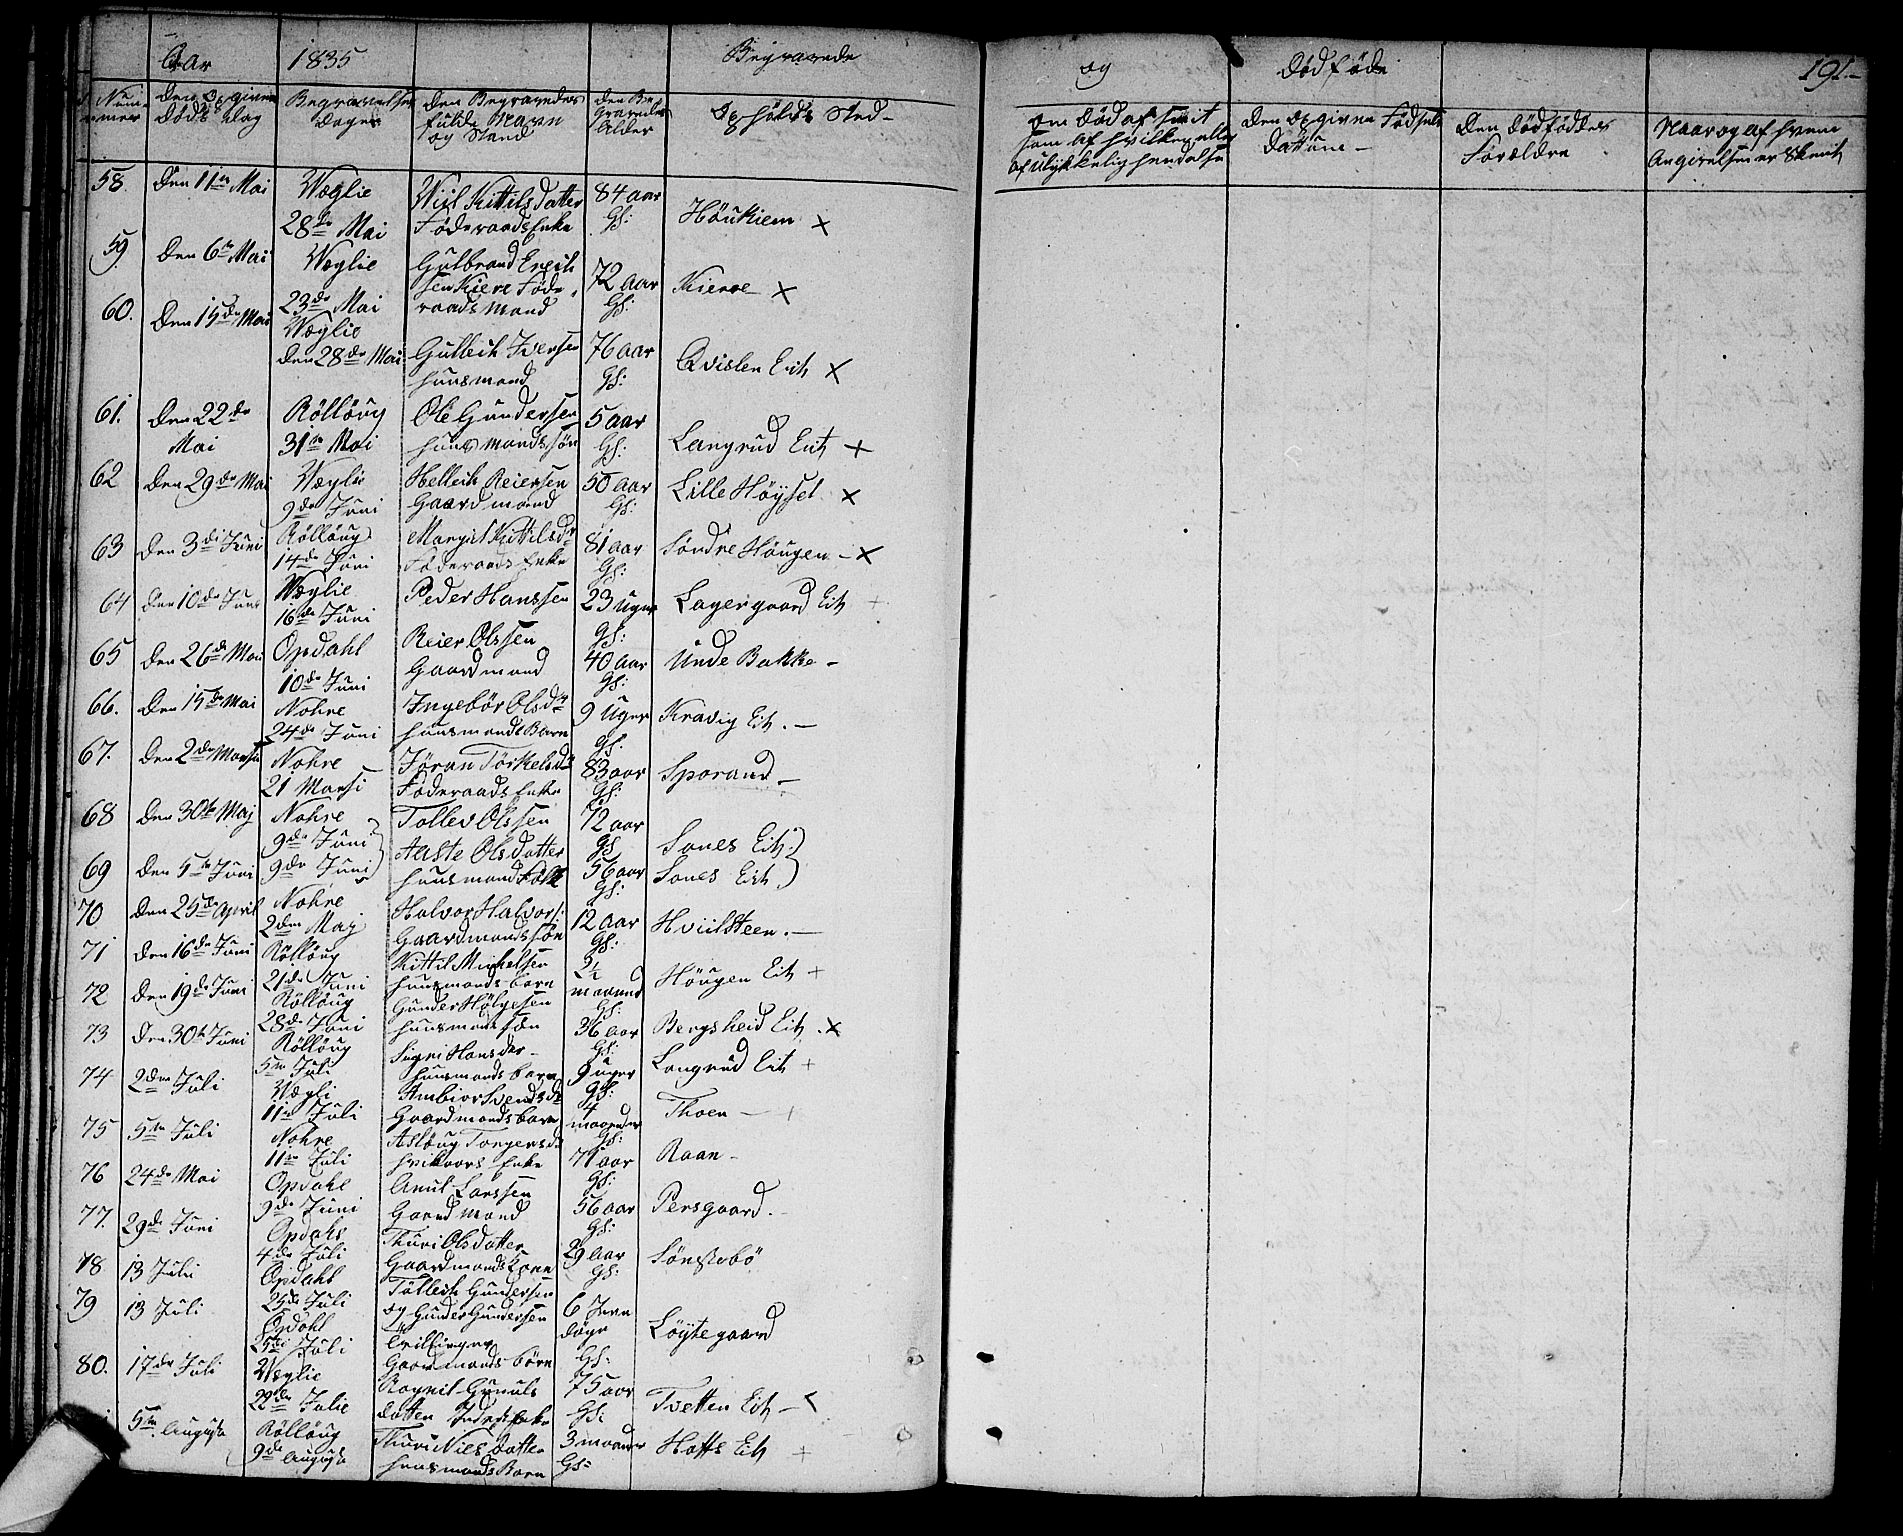 Aar 1835 Begravede og Dødføde 191.
Num-mer
Den Opgivne Døds Dag
Begravelses Dagen
Den Begravedes fulde Navn og Stand
Den Begravedes Alder
Opholds Sted
om død af som af hvilken eller af ulykkelig hendelse
Den opgivne Fødsels Datum
Den dødføddes Forældre
Naar og af hvem Angivelsen er skeut
58. Den 11te Mai Væglie 28de Mai Kittilsdatter Føderaads Enke 84 aar Gs: Höukiem x
59. Den 6te Mai Væglie 23de Mai Gulbrand Erich sen Kiere Føderaadsmand 72 aar Gs: Kierre x
60. Den 15de Mai Væglie den 28de Mai Gullech Iversen huusmand 76 aar Gs: Qvislen Eit x
61. Den 22de Mai Rölloug 31te Mai Ole Gundersen huusmands søn 5 aar Gs: Langrud Eit x
62 Den 29de Mai Væglie 9de Juni Hellech Reiersen Gaardmand 50 aar Gs: Lille Höÿset x
63 Den 3di Juni Rölloug 14de Juni Margit Kittilsdr Føderaads Enke 81 aar Gs: Søndre Hougen x
64 den 10de Juni Væglie 16de Juni Peder Hanssen 23 Uger Gs: Lagergaard Eit +
65 Den 26de Mai Opdahl 10de Juni Reier Olssen Gaardmand 40 aar Gs: Unde Bakke
66. Den 15de Mai Nohre 24de Juni Ingebör Olsdr huusmands Barn 9 Uger Gs: Kravig Eit.
67. Den 2de Marsi Nohre 21 Marsi Jöran Törkelsdr Føderaads Enke 83 aar Gs: Sporand
68 Den 30te Maj Nohre 9de Juni Tollev Olssen 72 aar Gs Sones Eit.
69 Den 5te Juni 9de Juni Aaste Olsdatter huusmand Folk 56 aar Gs: Sones Eit
70 Den 25de April Nohre 2den Maj Halvor Halvors: Gaardmands søn 12 aar Gs: Hviilsteen.
71 Den 16de Juni Rölloug 21de Juni Kittil Mickelsen huusmands barn 2½ maaned Gs: Höugen Eit +
72 Den 19de Juni Rölloug 28de Juni Gunder Hölgesen huusmand søn 36 aar Gs: Bergsheid Eit. x
73 Den 30te Juni Rölloug 5te Juli Sigri Hansdr huusmands barn 9 uger Gs: Langrud Eit +
74 2den Juli Vægli 11te Juli Ambior Svendsdr Gaardmands barn 4 maaneder Gs: Thoen +
75 5te Juli Nohre 11te Juli Aslöug Torgersdr Enke 71 aar Gs: Raan
76 24de Mai Opdahl 9de Juni Anul Larssen Gaardmand 56 aar Gs: Persgaard.
77. 29de Juni Opdahl 4de Juli Thuri Olsdatter Gaardmands Kone 29 aar Gs: Sönstebö
78 13 Juli Opdahl 25de Juli Tollech Gundersen
79 13 Juli Opdahl 25de Juli og Gunder Gundersen tvillinger Gaardmands børn 6 døgn Gs: Löÿtegaard
80. 17de Juli Væglie 22de Julie Ragnil Gunuls datter Enke 75 aar Gs: Tvetten Eit x
5te Augusti Rölloug 9de Augusti Thuri Niels datter huusmands Barn 3 maaneder Gs: Hoffs Eit +